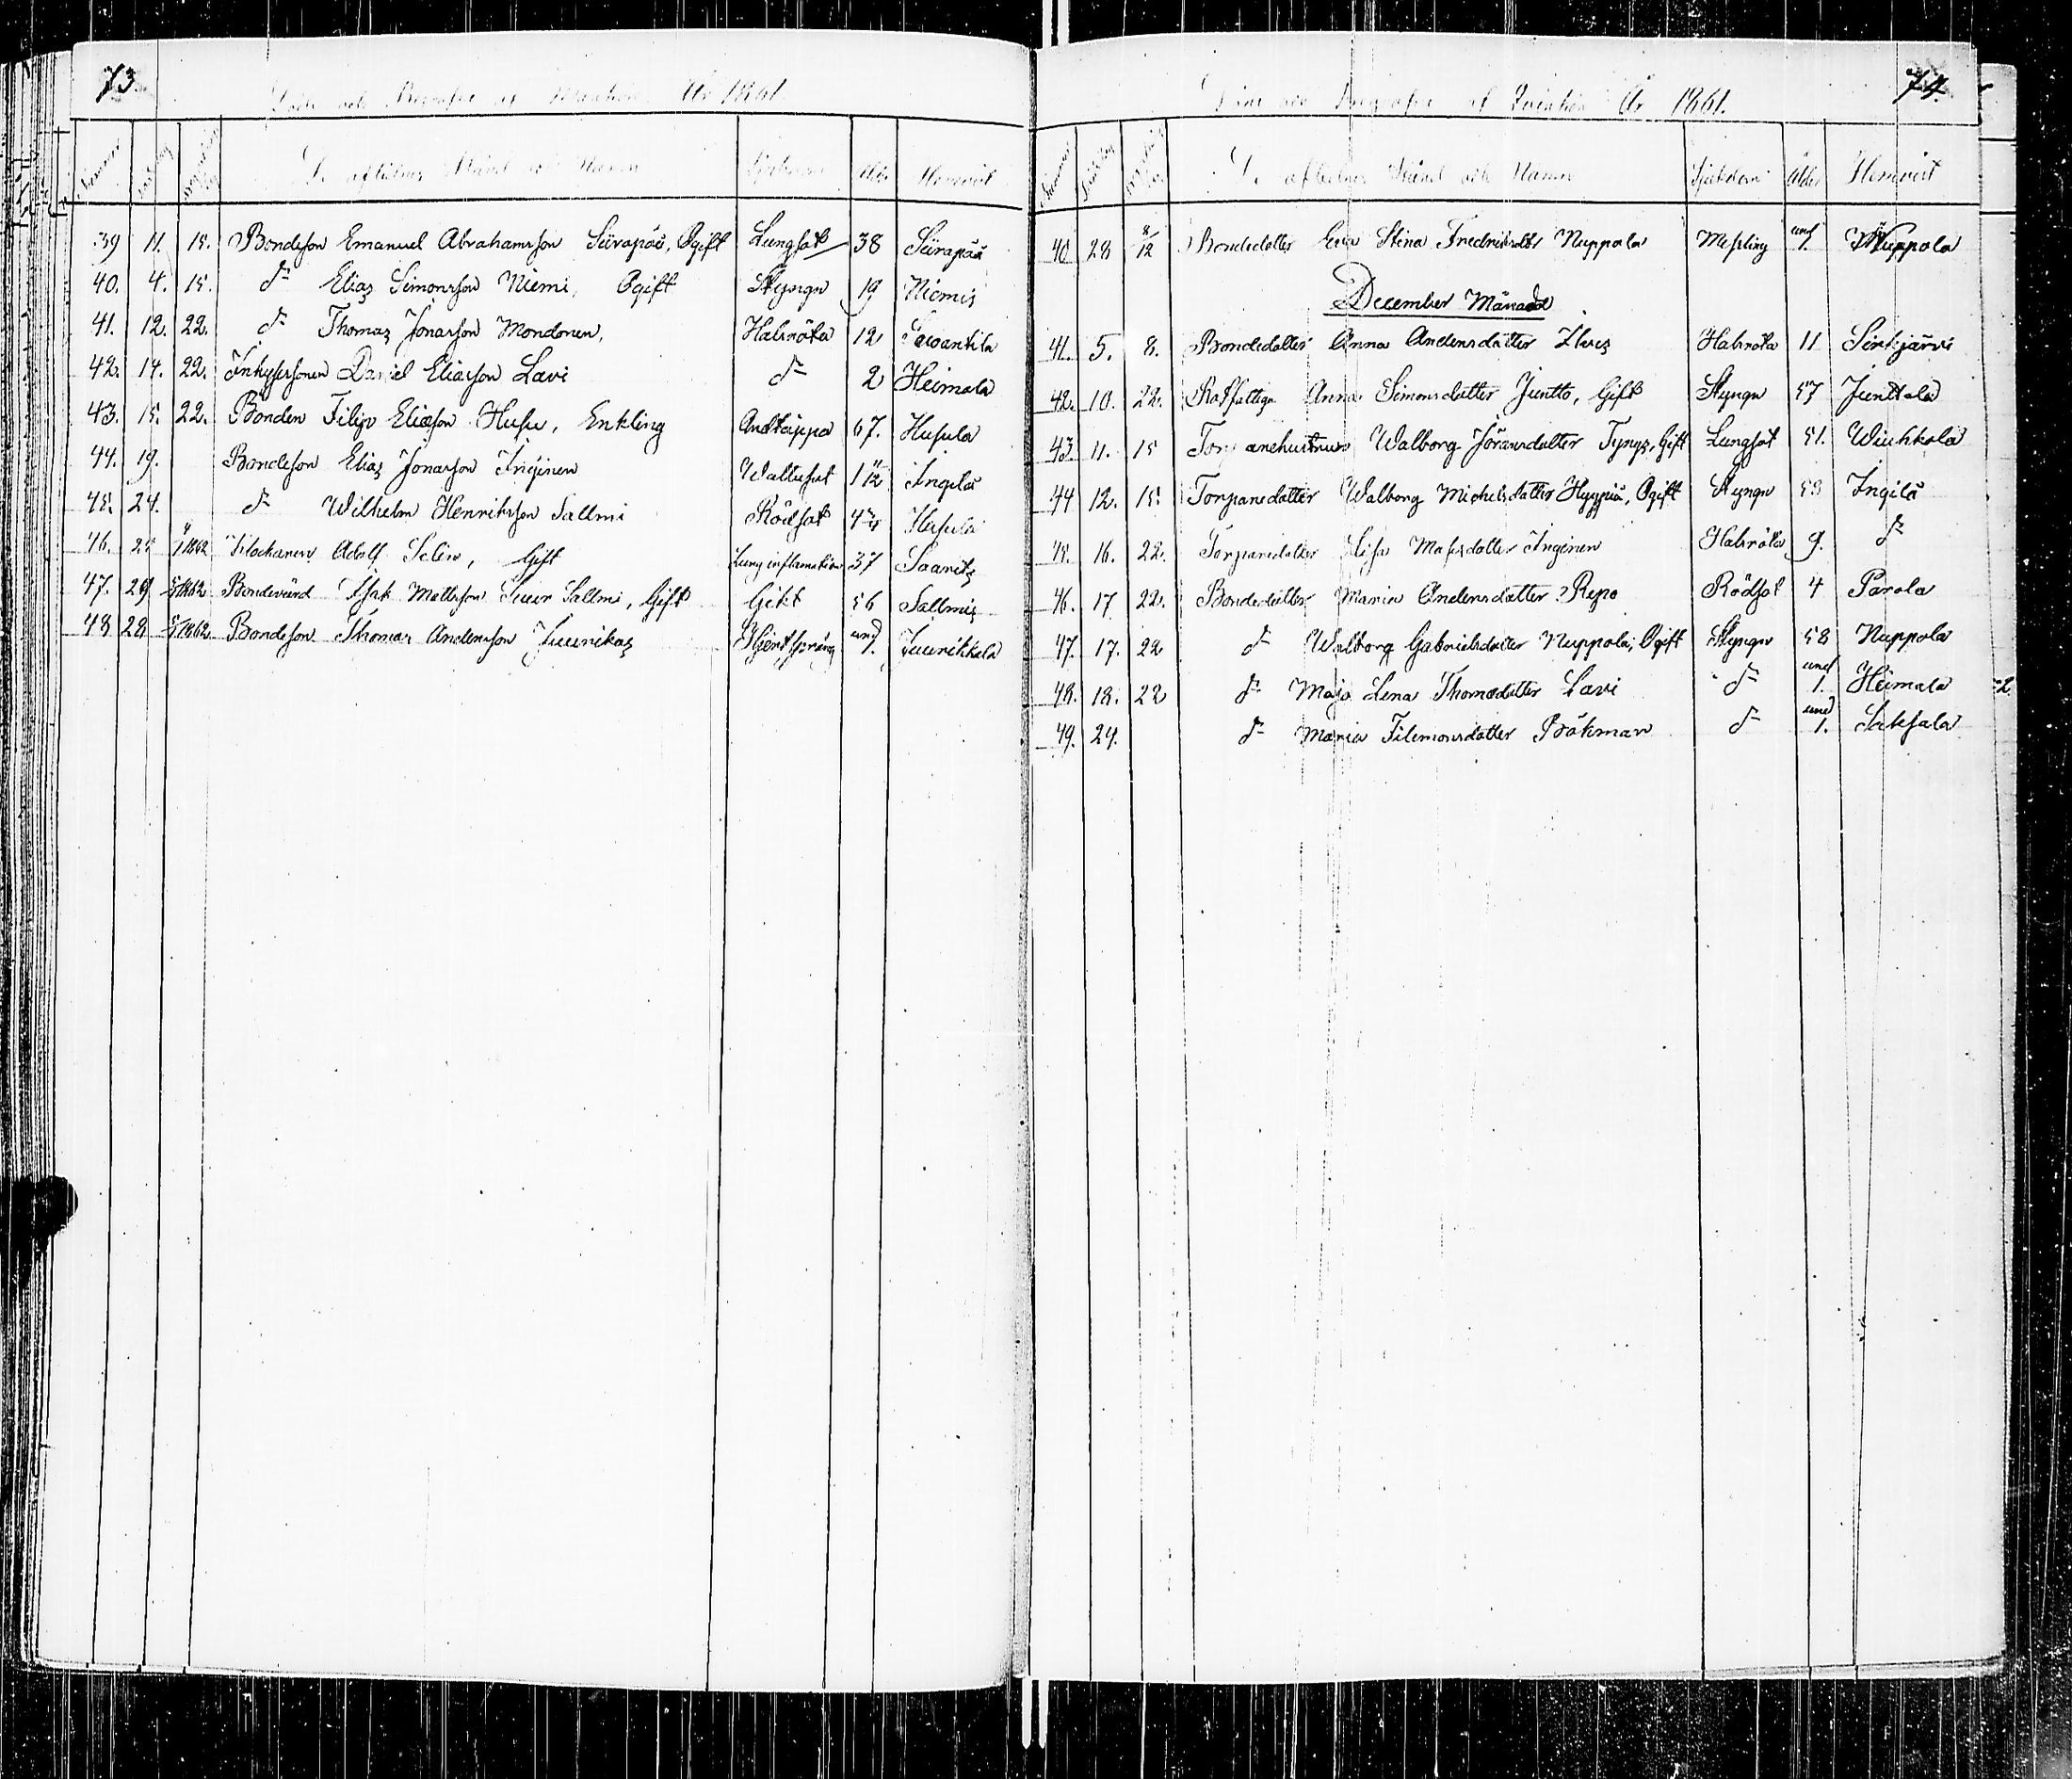 73.
Döde och Begrafne af Mankön År 1861
Nummer
De aflidnes Stånd och Namn Sjukdom Ålder Hemvist
39 11. 15. Bondeson Emanuel Abrahamsson Siirapää, Ogift Lungsot 38 Siirapää
40. 4. 15. d:o Elias Simonsson Niemi, Ogift Styngn 19 Niemis
41. 12. 22. d:o Thomas Jonasson Mondonen, Halsröta 12
42. 14. 22. Inhysessonen Daniel Eliasson Lavi d:o 2 Heimala
43. 15. 22. Bonden Filip Eliasson Husu, Enkling Andtäppa 67. Husula
44. 19. Bondeson Elias Jonasson Inginen Wattusot 1 11/12 Ingilä
45. 24. d:o Wilhelm Henriksson Sallmi Rödsot 4 3/4 Husula
46. 25 1862 Klockaren Adolf Selin, Gift Lunginflamation 37 Saarits
47. 29 5/1 1862 Bondevärd Isak Mattsson Suur Sallmi, Gift Gikt 56 Sallmis
48 28 5/1 1862 Bondeson Thomas Andersson Juurikas Hjertsprång und 1. Juurikkala
74.
Döde och Begrafne af Qvinkön År 1861.
Nummer
De aflidnes Stånd och Namn Sjukdom Ålder Hemvist
40 28 8/12 Bondedotter Eva Stina Fredriksdotter Nuppola Messling und 1. Nuppola
December Månad
41. 5. 8. Bondedotter Anna Andersdotter Ilves Halsröta 11 Sirkjärvi
42. 10. 22. Rotfattiga Anna Simonsdotter Juntto, Gift Styngn 57 Junttala
43 11. 15 Torparehustrun Walborg Jöransdotter Tynys, Gift Lungsot 51. Wiuhkola
44 12. 15. Torparedotter Walborg Michelsdotter Hyypiä, Ogift Styngn 53 Ingilä
45. 16. 22. Torparedotter Lisa Matsdotter Inginen Halsröta 9. d:o
46. 17 22. Bondedotter Maria Andersdotter Repo Rödsot 4 Parola
47. 17. 22 d:o Walborg Gabrielsdotter Nuppola, Ogift Styngn 58 Nuppola
48. 18. 22 d:o Maja Lena Thomasdotter Lavi d:o und 1. Heimala
49. 24. d:o Maria Filemonsdotter Bråkman d:o und 1. Suksala